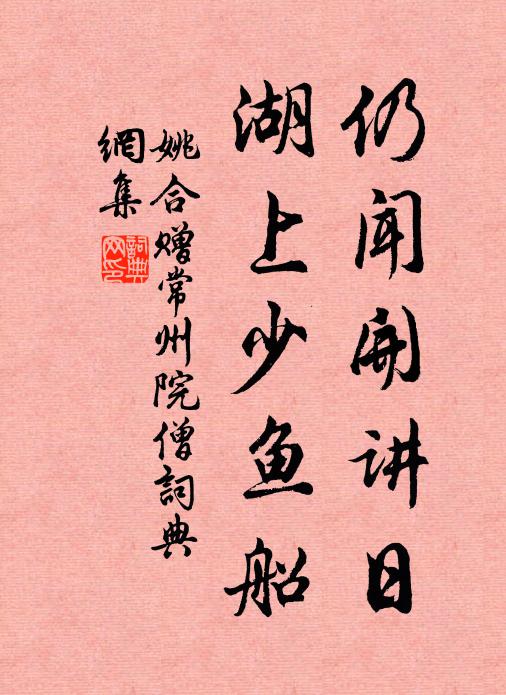 仍闻开讲日
湖上少鱼船
姚合赠常州院僧詞典
網集
詞典网印